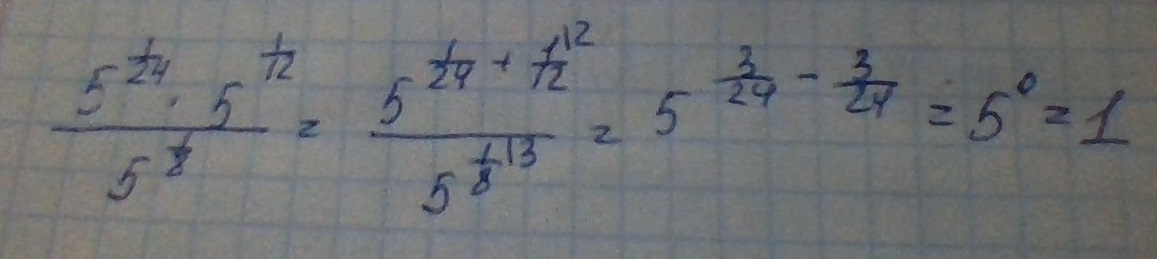 5^{1/24} · 5^{1/12} / 5^{1/8} = 5^{1/24 + 1/12 |2} / 5^{1/8 |3} = 5^{3/24 - 3/24} = 5^0 = 1